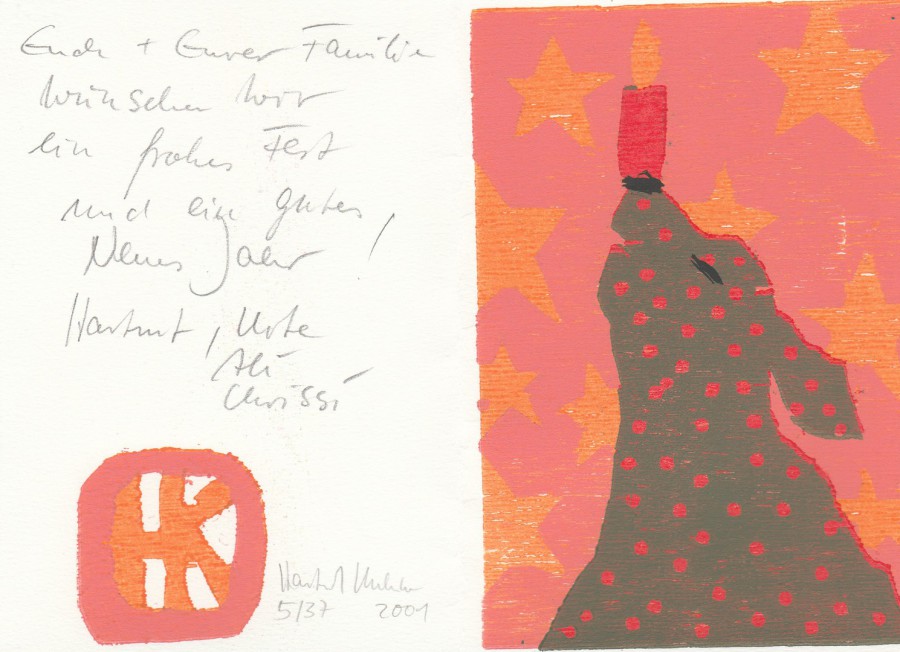 Euch + Eurer Familie
wünschen wir
ein frohes Fest
und ein gutes
Neues Jahr!
Hartmut, Ute
Ali
Chrissi
K
Hartmut
5/37 2001